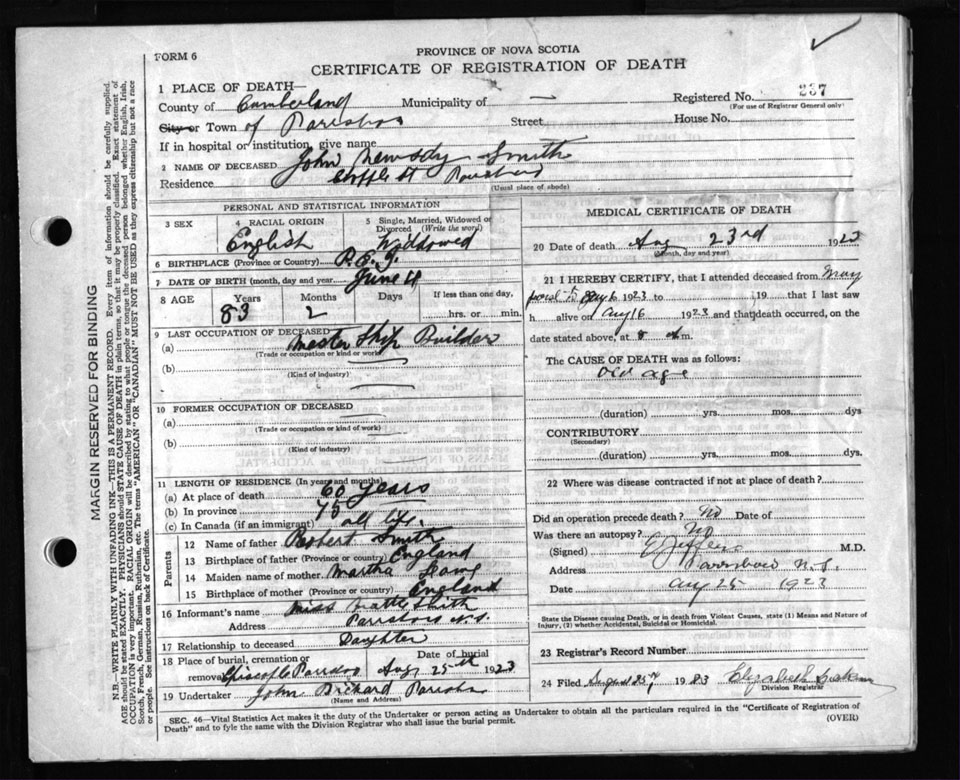 FORM 6
PROVINCE OF NOVA SCOTIA
CERTIFICATE OF REGISTRATION OF DEATH
1 PLACE OF DEATH—
County of Cumberland Municipality of — Registered No. 237
(For use of Registrar General only)
City or Town of Parrsboro Street House No.
If in hospital or institution, give name
2 NAME OF DECEASED John Smith
Residence St
(Usual place of abode)
PERSONAL AND STATISTICAL INFORMATION
3 SEX 4 RACIAL ORIGIN 5 Single, Married, Widowed or Divorced (Write the word)
English Widdowed
6 BIRTHPLACE (Province or Country) P.E.I.
7 DATE OF BIRTH (month, day and year) June 4
8 AGE Years Months Days If less than one day,
83 2 hrs. or min.
9 LAST OCCUPATION OF DECEASED
(a) Master Ship Builder
(Trade or occupation or kind of work)
(b)
(Kind of industry)
10 FORMER OCCUPATION OF DECEASED
(a)
(Trade or occupation or kind of work)
(b)
(Kind of industry)
11 LENGTH OF RESIDENCE (In years and months)
(a) At place of death 60 years
(b) In province 75
(c) In Canada (if an immigrant) all life.
Parents
12 Name of father Robert Smith
13 Birthplace of father (Province or country) England
14 Maiden name of mother Martha
15 Birthplace of mother (Province or country) England
16 Informant's name Miss Smith
Address Parrsboro N.S.
17 Relationship to deceased Daughter
18 Place of burial, cremation or removal Date of burial
Aug 25th 1923
19 Undertaker John Prichard
(Name and Address)
MEDICAL CERTIFICATE OF DEATH
20 Date of death Aug 23rd 1923
(Month, day and year)
21 I HEREBY CERTIFY, that I attended deceased from May
1923 to 19 that I last saw
h alive on Aug 16 1923 and that death occurred, on
date stated above, at 8 m.
The CAUSE OF DEATH was as follows:
old age
(duration) yrs. mos. dys
CONTRIBUTORY
(Secondary)
(duration) yrs. mos. dys.
22 Where was disease contracted if not at place of death?
Did an operation precede death? No Date of
Was there an autopsy? No
(Signed) M.D.
Address Parrsboro N.S.
Date Aug 25 1923
State the Disease causing Death, or in death from Violent Causes, state (1) Means and Nature of Injury, (2) whether Accidental, Suicidal or Homicidal.
23 Registrar's Record Number
24 Filed August 25 1923 Elizabeth
Division Registrar
SEC. 46—Vital Statistics Act makes it the duty of the Undertaker or person acting as Undertaker to obtain all the particulars required in the "Certificate of Registration of
Death" and to fyle the same with the Division Registrar who shall issue the burial permit. (OVER)
MARGIN RESERVED FOR BINDING
N.B.—WRITE PLAINLY WITH UNFADING INK—THIS IS A PERMANENT RECORD. Every item of information should be carefully supplied.
AGE should be stated EXACTLY. PHYSICIANS should STATE CAUSE OF DEATH in plain terms, so that it may be properly classified. Exact statement of
OCCUPATION is very important. RACIAL ORIGIN will be described by stating to what people or tongue the deceased person belonged whether English, Irish,
Scotch, French, German, Russian, Ruthenian, etc. The terms "AMERICAN" or "CANADIAN" MUST NOT BE USED as they express citizenship but not a race
or people. See instructions on back of Certificate.